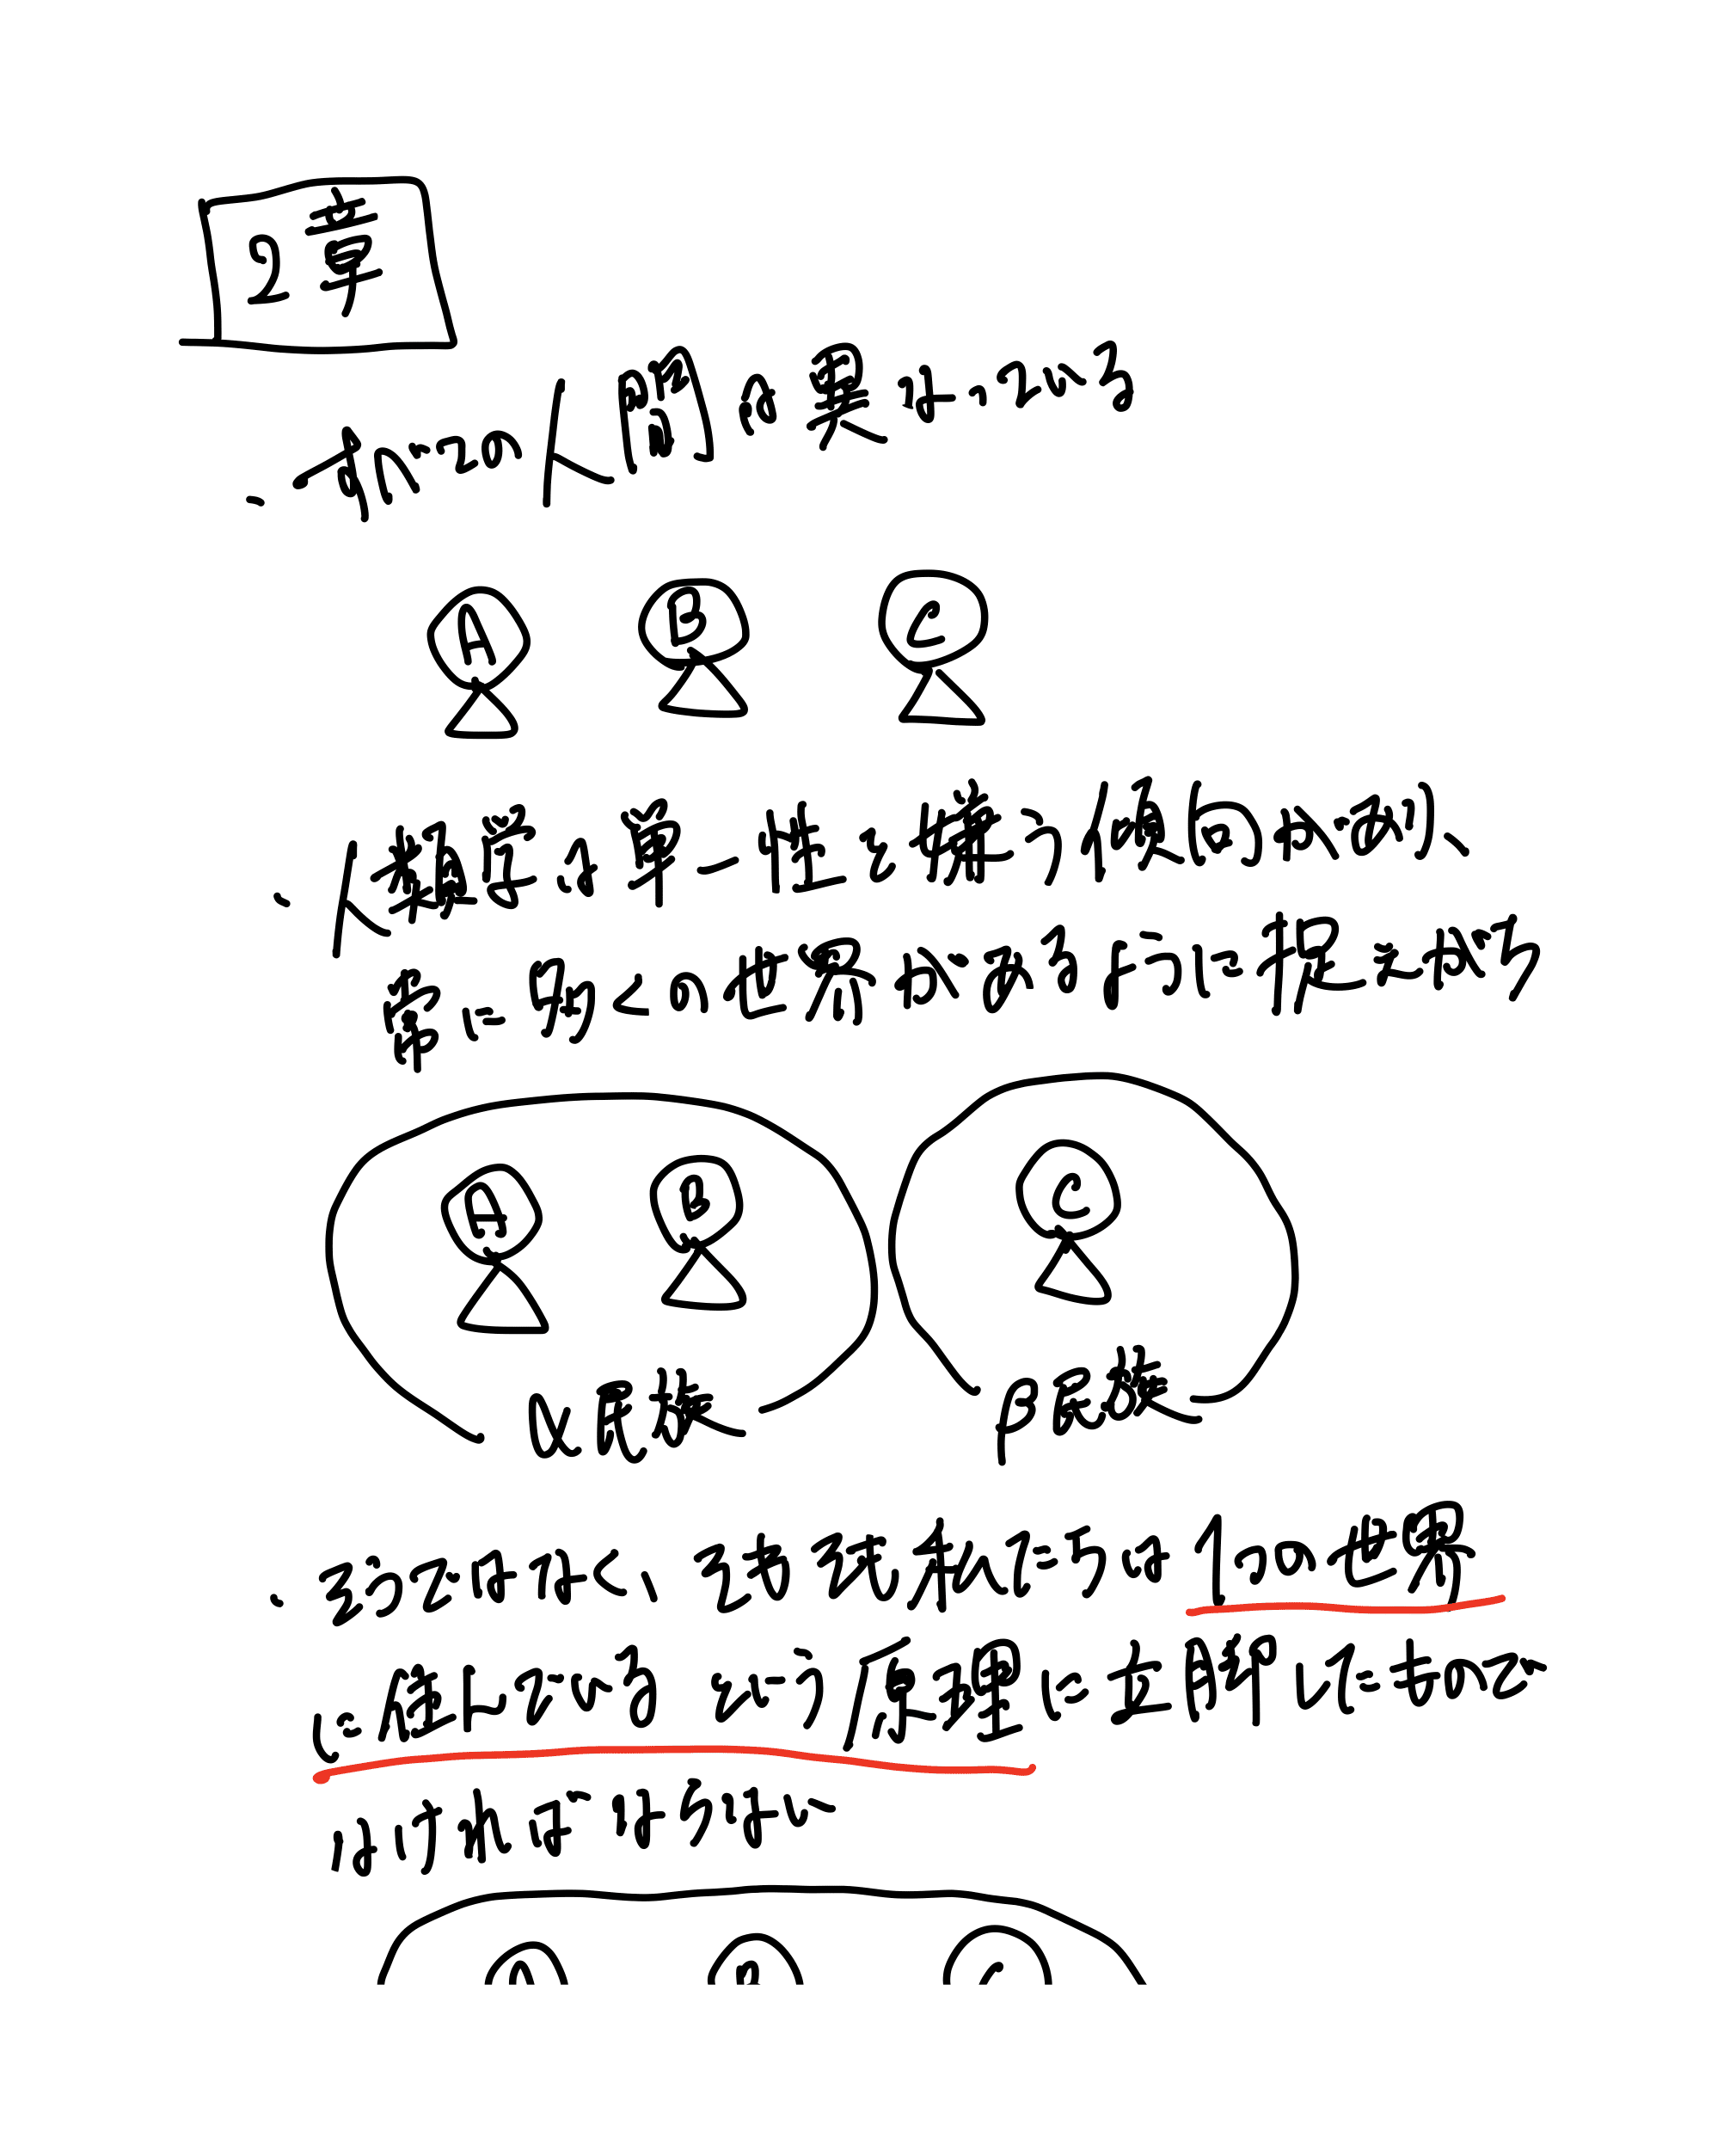 2章
・すべての人間は異なっている
A B C
・人類学は単一性を嫌う傾向があり、
常に多くの世界があるように捉えがち
A B C
α民族 β民族
・そうではなく、むしろ私たちは1つの世界
に住んでいるという原理に立脚しなものでなければならない